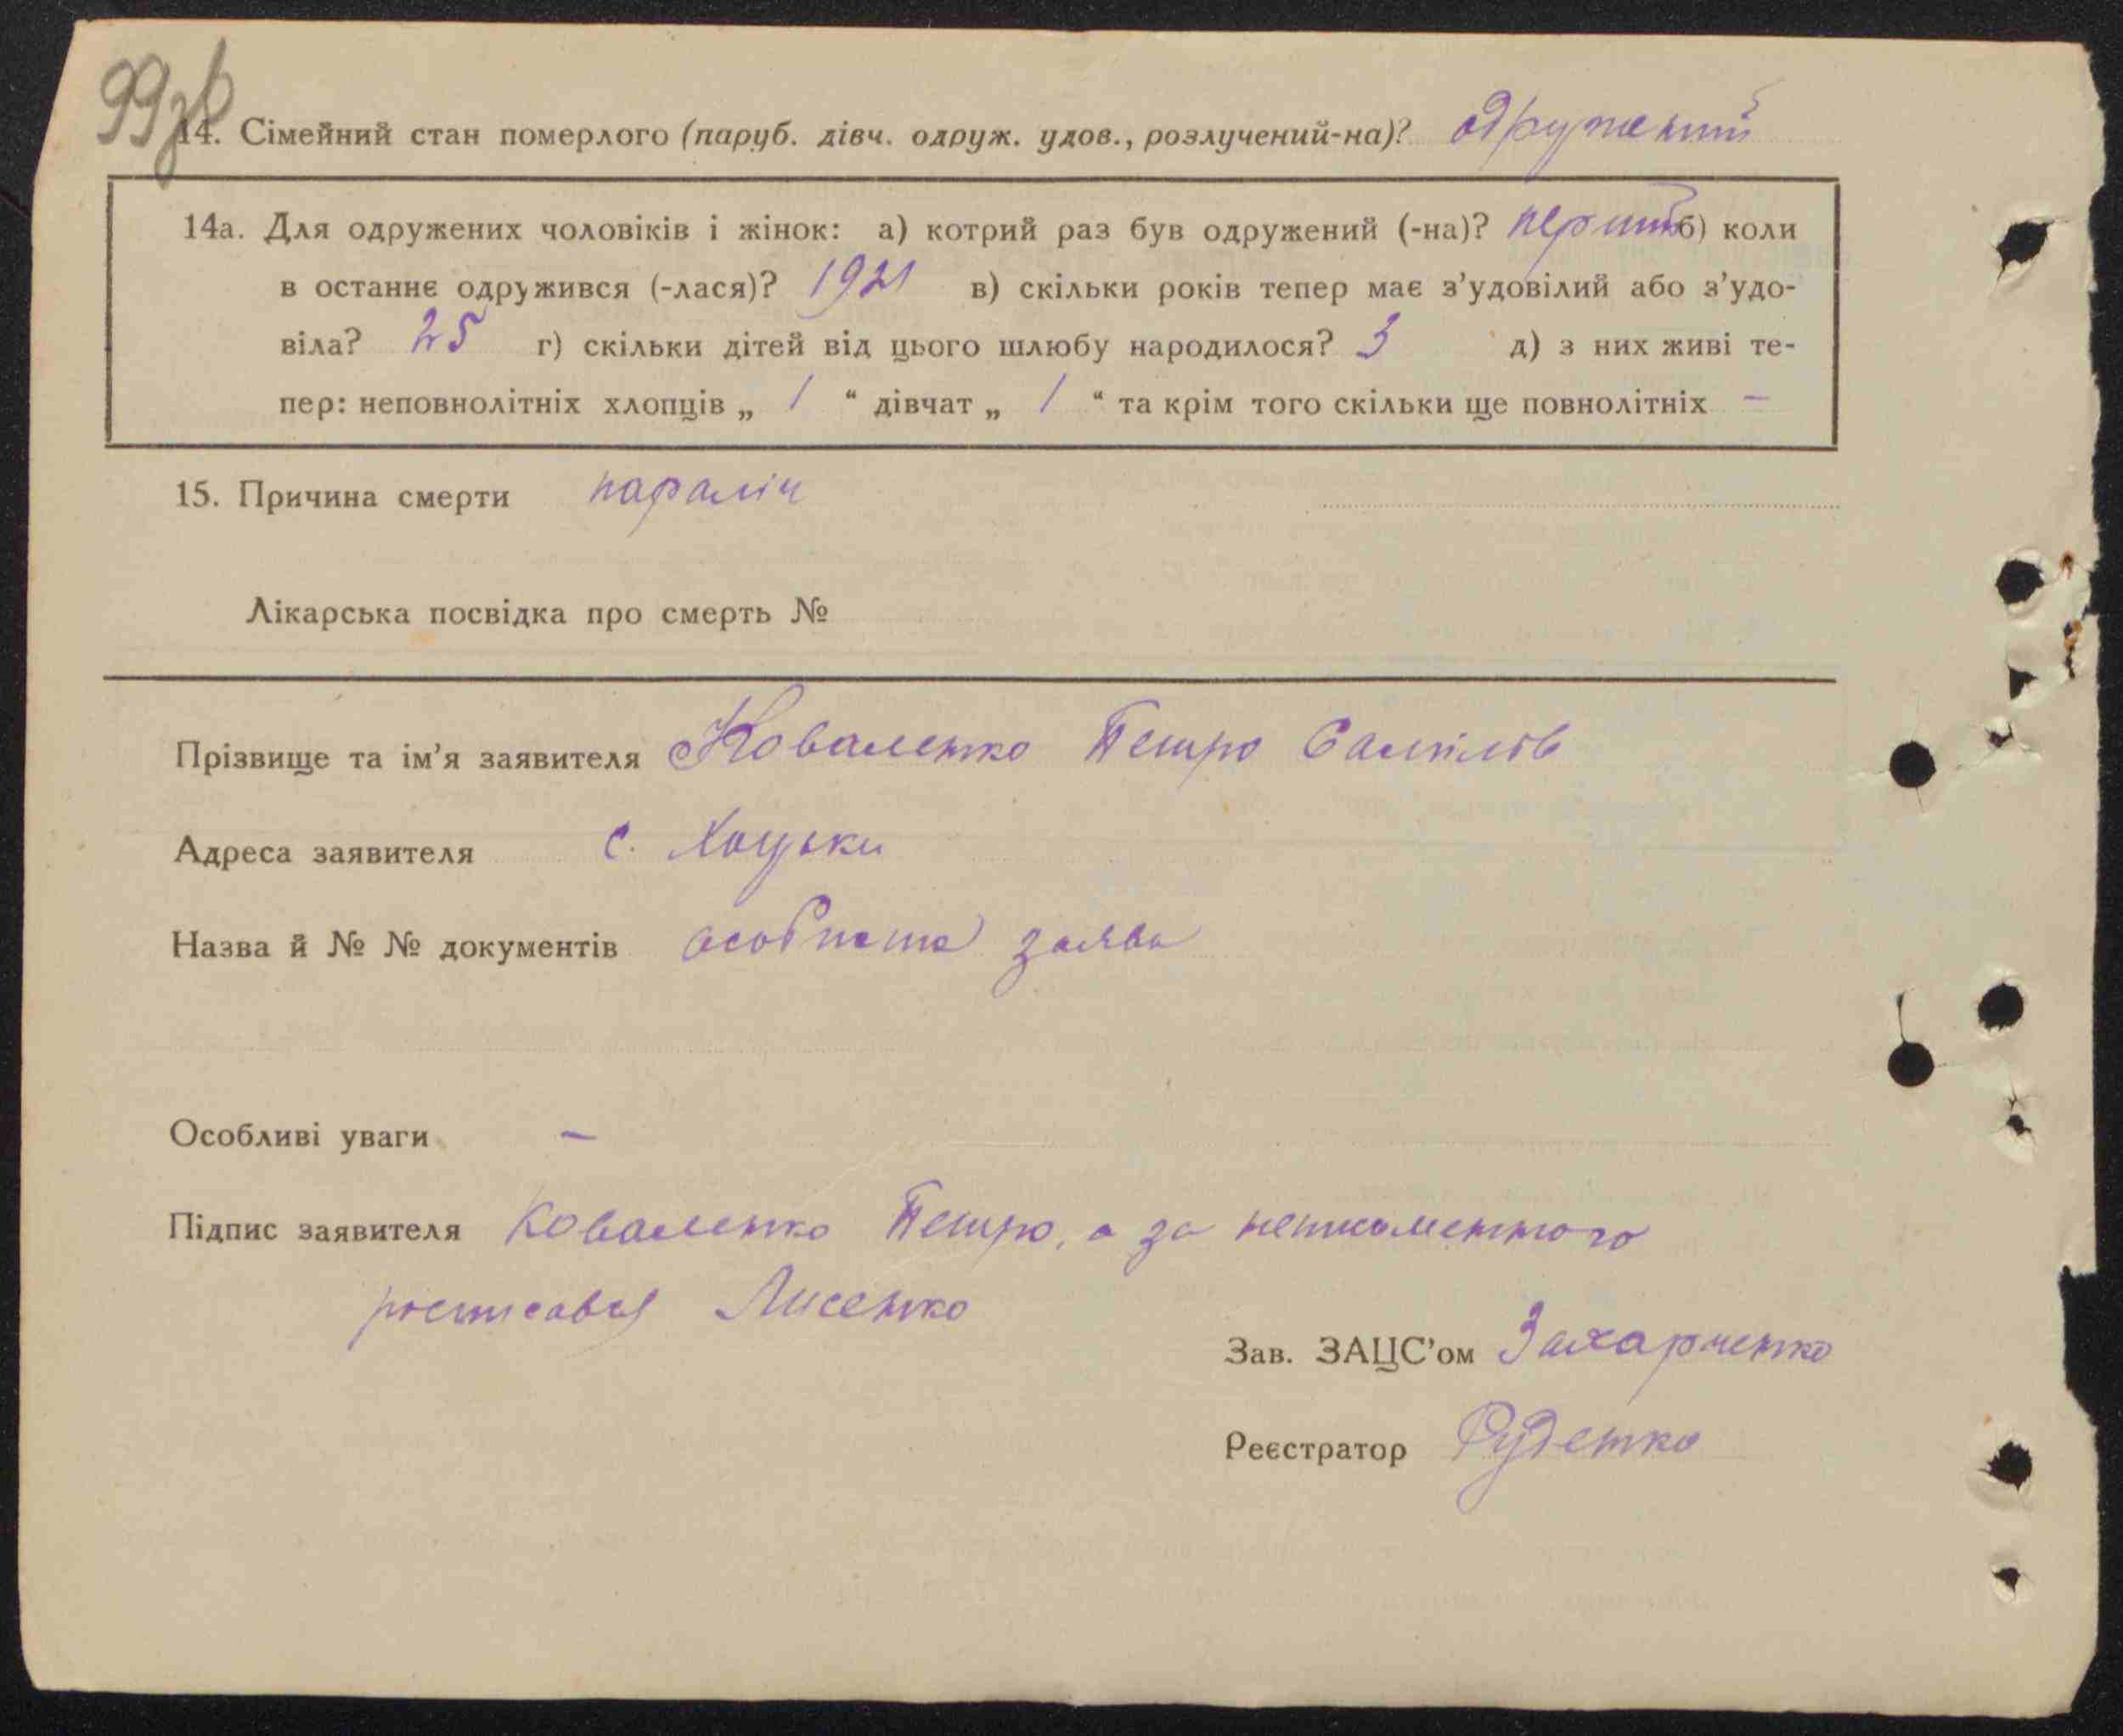 99зв
14. Сімейний стан померлого (паруб. дівч. одруж. удов., розлучений-на)? одружений
14а. Для одружених чоловіків і жінок: а) котрий раз був одружений (-на)? перший б) коли
в останнє одружився (-лася)? 1921 в) скільки років тепер має з’удовілий або з’удо-
віла? 25 г) скільки дітей від цього шлюбу народилося? 3 д) з них живі те-
пер: неповнолітніх хлопців „ 1 “ дівчат „ 1 “ та крім того скільки ще повнолітніх —
15. Причина смерти параліч
Лікарська посвідка про смерть №
Прізвище та ім’я заявителя Коваленко Петро
Адреса заявителя с. Хоцьки
Назва й № № документів особиста заява
Особливі уваги —
Підпис заявителя Коваленко Петро, а за неписьменного
росписався Лисенко
Зав. ЗАЦС’ом Захарченко
Реєстратор Руденко